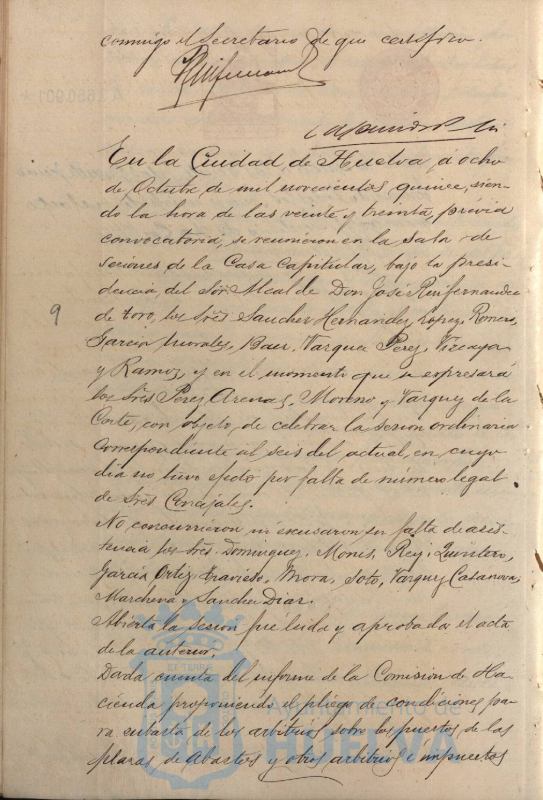 conmigo el Secretario de que certifico.
En la Ciudad de Huelva, á ocho
de Octubre de mil novecientos quince, sien-
do la hora de las veinte y treinta, prévia
convocatoria, se reunieron en la Sala de
sesiones de la Casa Capitular, bajo la presi-
dencia del Sór. Alcalde Don José Ruifernandez
9
de toro, los Srēs Sanchez Hernandez, Lopez, Romero,
Garcia Morales, Baer, Vazquez Perez, Vizcaya
y Ramos, y en el momento que se expresará
los Srēs Perez Arenas, Moreno y Vazquez de la
Corte, con objeto de celebrar la sesion ordinaria
correspondiente al seis del actual, en cuyo
dia no tuvo efecto por falta de número legal
de Srēs Concejales.
No concurrieron ni excusaron su falta de asis-
tencia los Srēs. Dominguez, Monis, Rey, Quintero,
García Ortiz, Travieso, Mora, Soto, Vazquez Casanova,
Marchena y Sanchez Diaz.
Abierta la sesion fué leida y aprobada el acta
de la anterior.
Dada cuenta del informe de la Comision de Ha-
cienda proponiendo el pliego de condiciones pa-
ra subasta de los arbitrios sobre los puestos de las
plazas de Abastos y otros arbitrios é impuestos
Ayuntamiento de
HUELVA